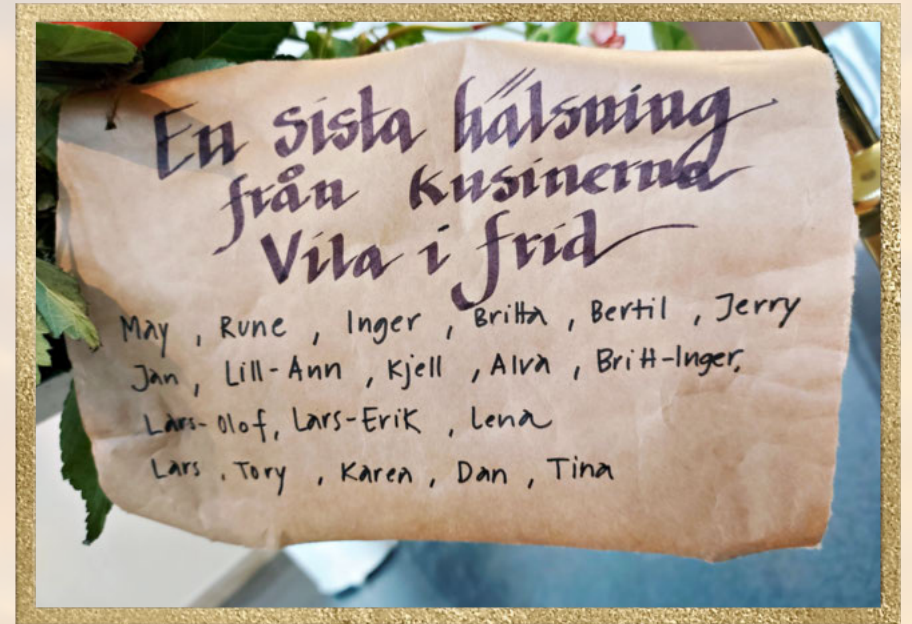 En sista hälsning
från kusinerna
Vila i frid
May, Rune, Inger, Britta, Bertil, Jerry
Jan, Lill-Ann, Kjell, Alva, Britt-Inger,
Lars-Olof, Lars-Erik, Lena
Lars, Tory, Karen, Dan, Tina